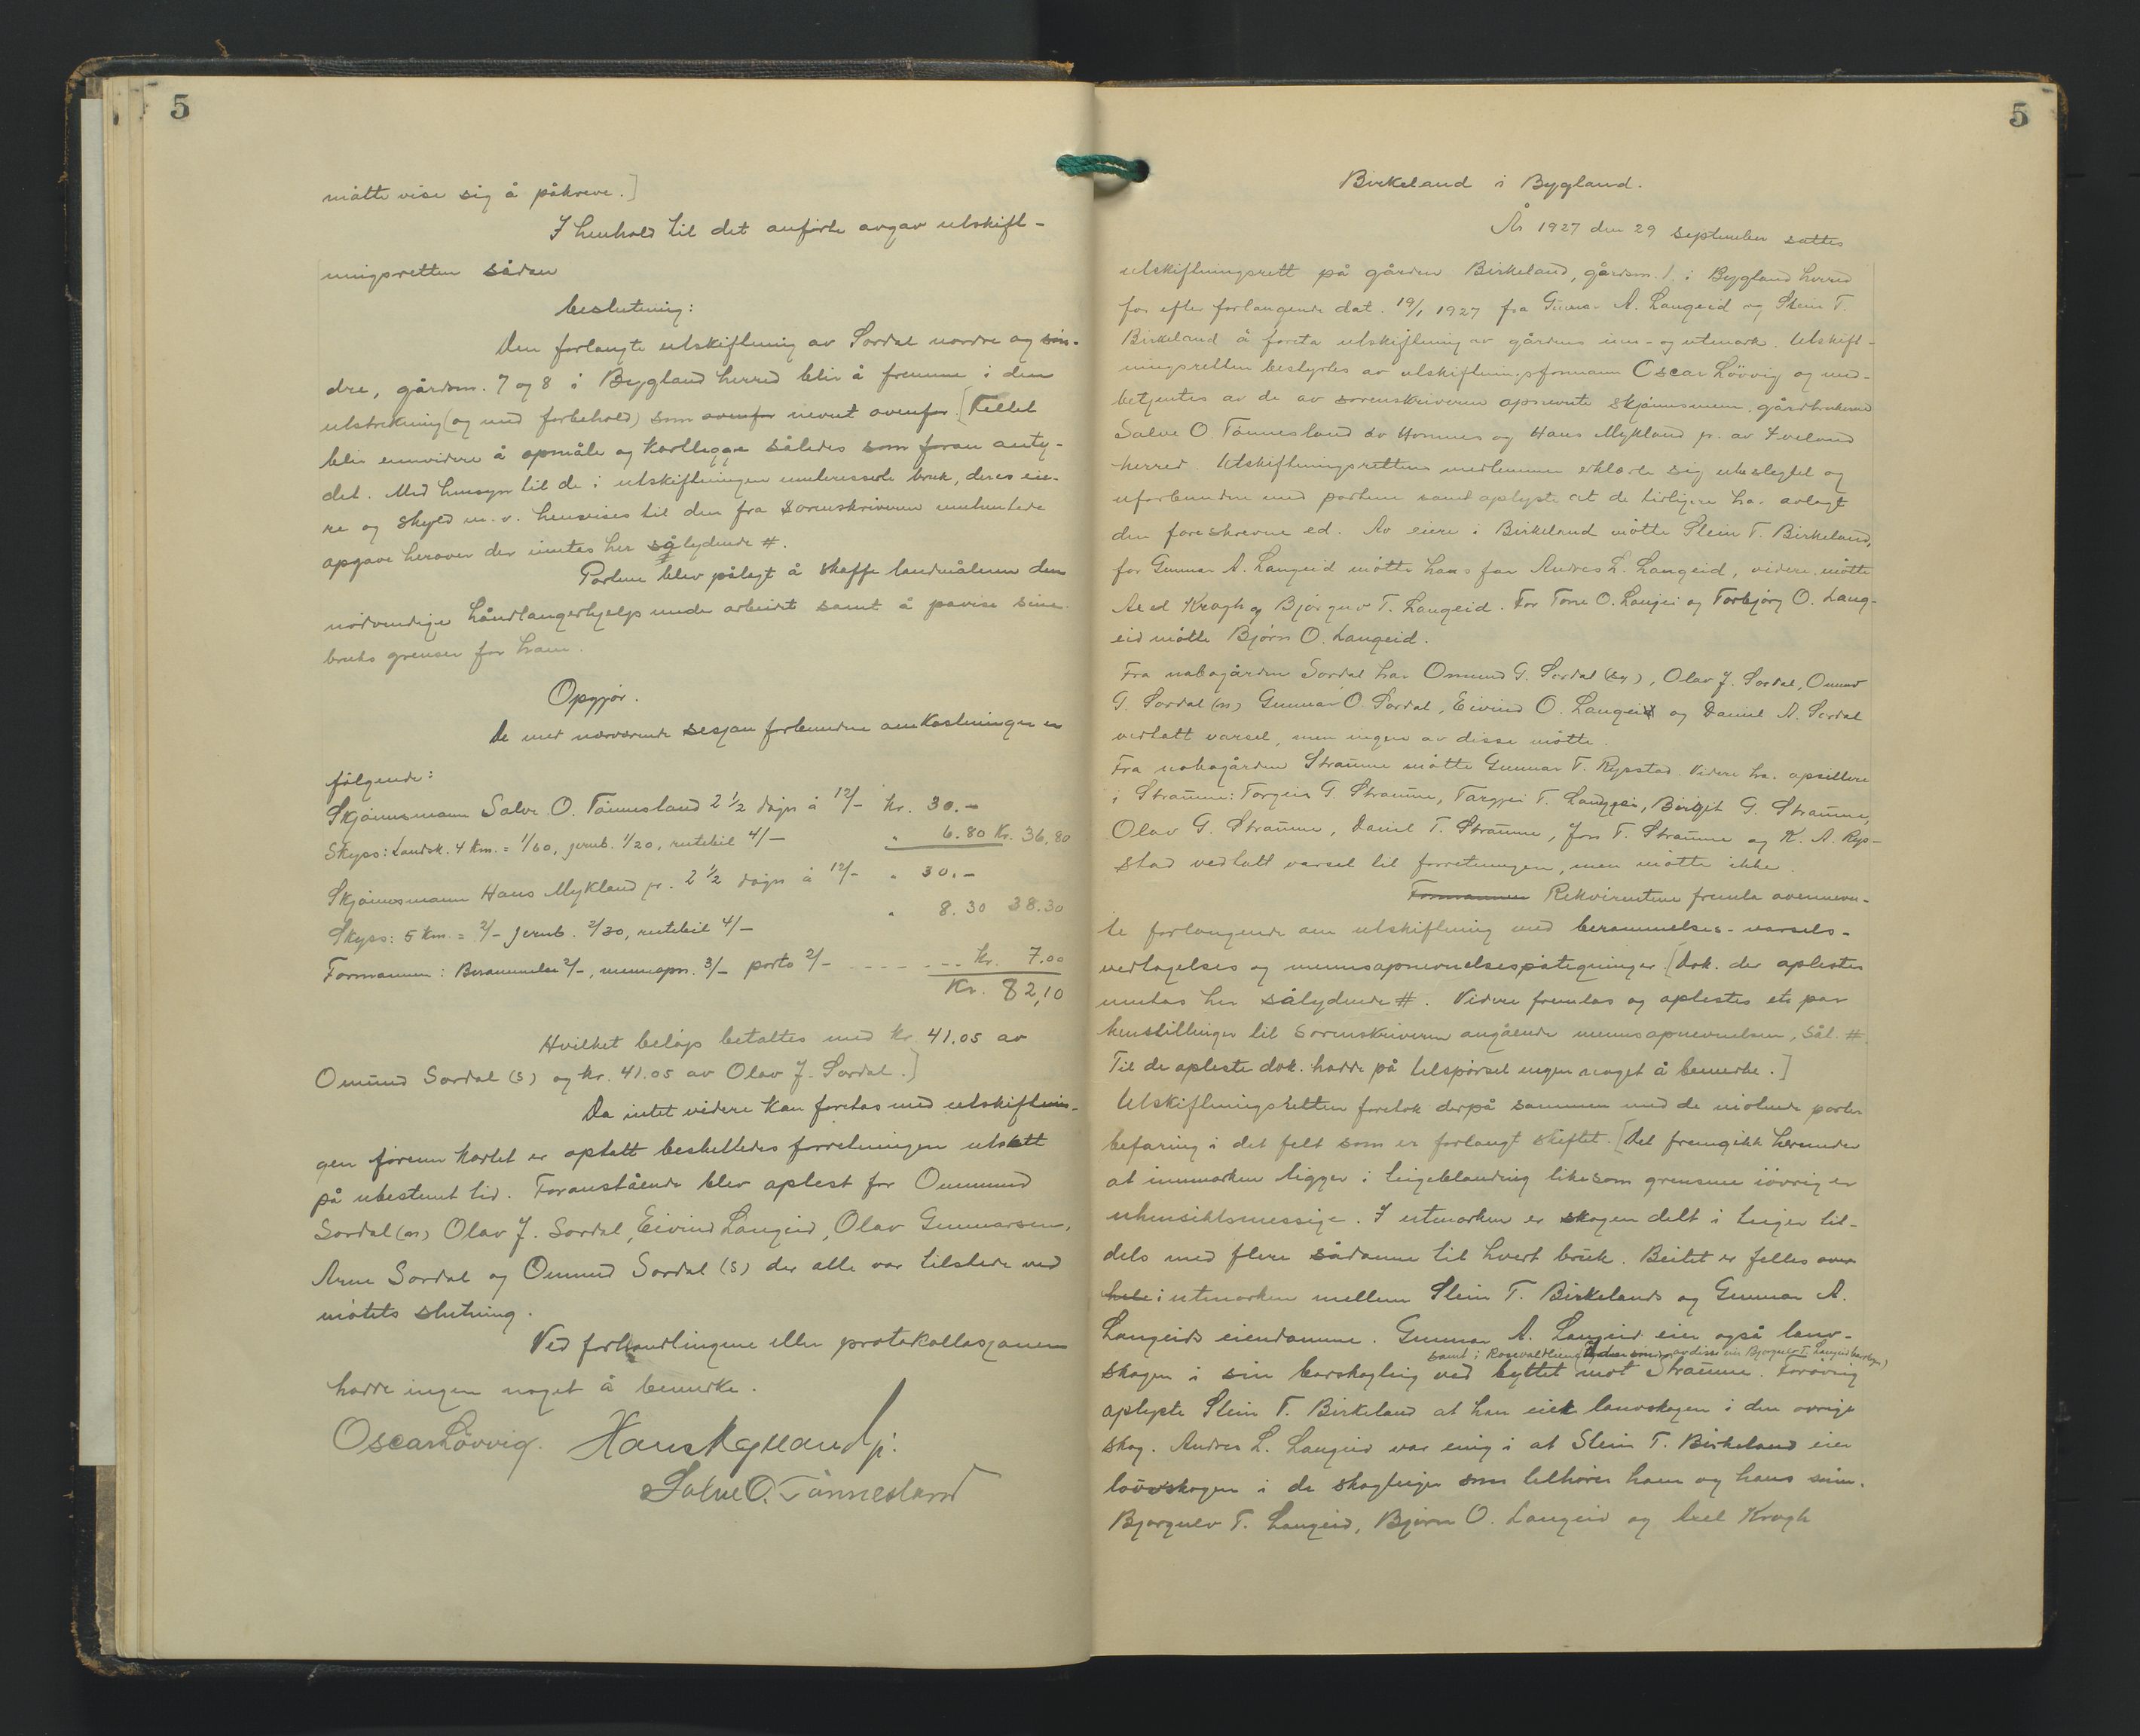 5
måtte vise sig å påkreve.]
I henhold til det anførte avgav utskift-
ningsretten sådan
beslutning:
Den forlangte utskiftning av Sordal nordre og søn-
dre, gårdsnr. 7 og 8 i Bygland herred blir å fremme i den
utstrekning (og med forbehold) som ovenfor nevnt ovenfor. [Feltet
blir enn videre å opmåle og kartlegge således som foran anty-
det. Med hensyn til de i utskiftningen interesserte bruk, deres eie-
re og skyld m. v. henvises til den fra sorenskriveren innhentede
opgave herover der inntas her sålydende #.
Partene blev pålagt å skaffe landmåleren den
nødvendige håndlangerhjelp under arbeidet samt å påvise sine
bruks grenser for ham.
Opgjør.
De med nærværende sesjon forbundne omkostninger er
følgende:
Skjønnsmann Salve O. Tønnesland 2 1/2 døgn à 12/- kr. 30.-
Skyss: Landsk. 4 km. = 1/60, jernb. 1/20, rutebil 4/- " 6.80 Kr. 36,80
Skjønnsmann Hans Mykland jr. 2 1/2 døgn à 12/- " 30.-
Skyss: 5 km = 2/- jernb. 2/30, rutebil 4/- " 8.30 38.30
Formannen: Berammelse 2/-, mennopn. 3/- porto 2/- - - - - - - - Kr. 7.00
Kr. 82,10
Hvilket beløp betaltes med kr. 41.05 av
Omund Sordal (s) og kr. 41.05 av Olav J. Sordal.]
Da intet videre kan foretas med utskiftnin-
gen førenn kartet er optatt besluttedes forretningen utsatt
på ubestemt tid. Foranstående blev oplest for Ommund
Sordal (n) Olav J. Sordal, Eivind Langeid, Olav Gunnarsen,
Arne Sordal og Omund Sordal (S) der alle var tilstede ved
møtets slutning.
Ved forhandlingene eller protokollasjonen
hadde ingen noget å bemerke.
Oscar Løvvig. Hans Mykland jr.
Salve O. Tønnesland
5
Birkeland i Bygland.
År 1927 den 29 september sattes
utskiftningsrett på gården Birkeland, gårdsnr. 1, i Bygland herred
for efter forlangende dat. 19/1 1927 fra Gunnar A. Langeid og Stein T.
Birkeland å foreta utskiftning av gårdens inn- og utmark. Utskift-
ningsretten bestyrtes av utskiftningsformann Oscar Løvvig og med-
betjentes av de av sorenskriveren opnevnte skjønnsmenn, gårdbrukerne
Salve O. Tønnesland av Hornnes og Hans Mykland jr. av Iveland
herred. Utskiftningsrettens medlemmer erklærte sig ubeslegtet og
uforbundne med partene samt oplyste at de tidligere har avlagt
den foreskrevne ed. Av eiere i Birkeland møtte Stein T. Birkeland,
for Gunnar A. Langeid møtte hans far Andres L. Langeid, videre møtte
Axel Krogh og Bjørgulv T. Langeid. For Tone O. Langei og Torbjørg O. Lang-
eid møtte Bjørn O. Langeid.
Fra nabogården Sordal har Omund G. Sordal (sy), Olav J. Sordal, Omund
G. Sordal (n) Gunnar O. Sordal, Eivind O. Langeid og Daniel A. Sordal
vedtatt varsel, men ingen av disse møtte.
Fra nabogården Straume møtte Gunnar T. Rysstad. Videre har opsittere
i Straume: Torgeir G. Straume, Targjei T. Langjei, Birgit G. Straume,
Olav G. Straume, Daniel T. Straume, Jon T. Straume og K. A. Rys-
stad vedtatt varsel til forretningen, men møtte ikke.
Formannen Rekvirentene fremla ovennevn-
te forlangende om utskiftning med berammelses- varsels-
vedtagelses og mennsopnevnelsespåtegninger. [Dok. der oplestes
inntas her sålydende #. Videre fremlas og oplestes et par
henstillinger til sorenskriveren angående mennsopnevnelsen, sål. #.
Til de opleste dok. hadde på tilspørsel ingen noget å bemerke.]
Utskiftningsretten foretok derpå sammen med de møtende parter
befaring i det felt som er forlangt skiftet. [Det fremgikk herunder
at innmarken ligger i teigblanding likesom grensene iøvrig er
uhensiktsmessige. I utmarken er skogen delt i teiger til-
dels med flere sådanne til hvert bruk. Beitet er felles over
hele i utmarken mellem Stein T. Birkelands og Gunnar A.
Langeids eiendomme. Gunnar A. Langeid eier også lauv-
skogen i sin barskogteig ved byttet mot Straume. Forøvrig
oplyste Stein T. Birkeland at han eier lauvskogen i den øvrige
skog. Andres L. Langeid var enig i at Stein T. Birkeland eier
løvskogen i de skogteiger som tilhører ham og hans sønn.
Bjørgulv T. Langeid, Bjørn O. Langeid og Axel Krogh